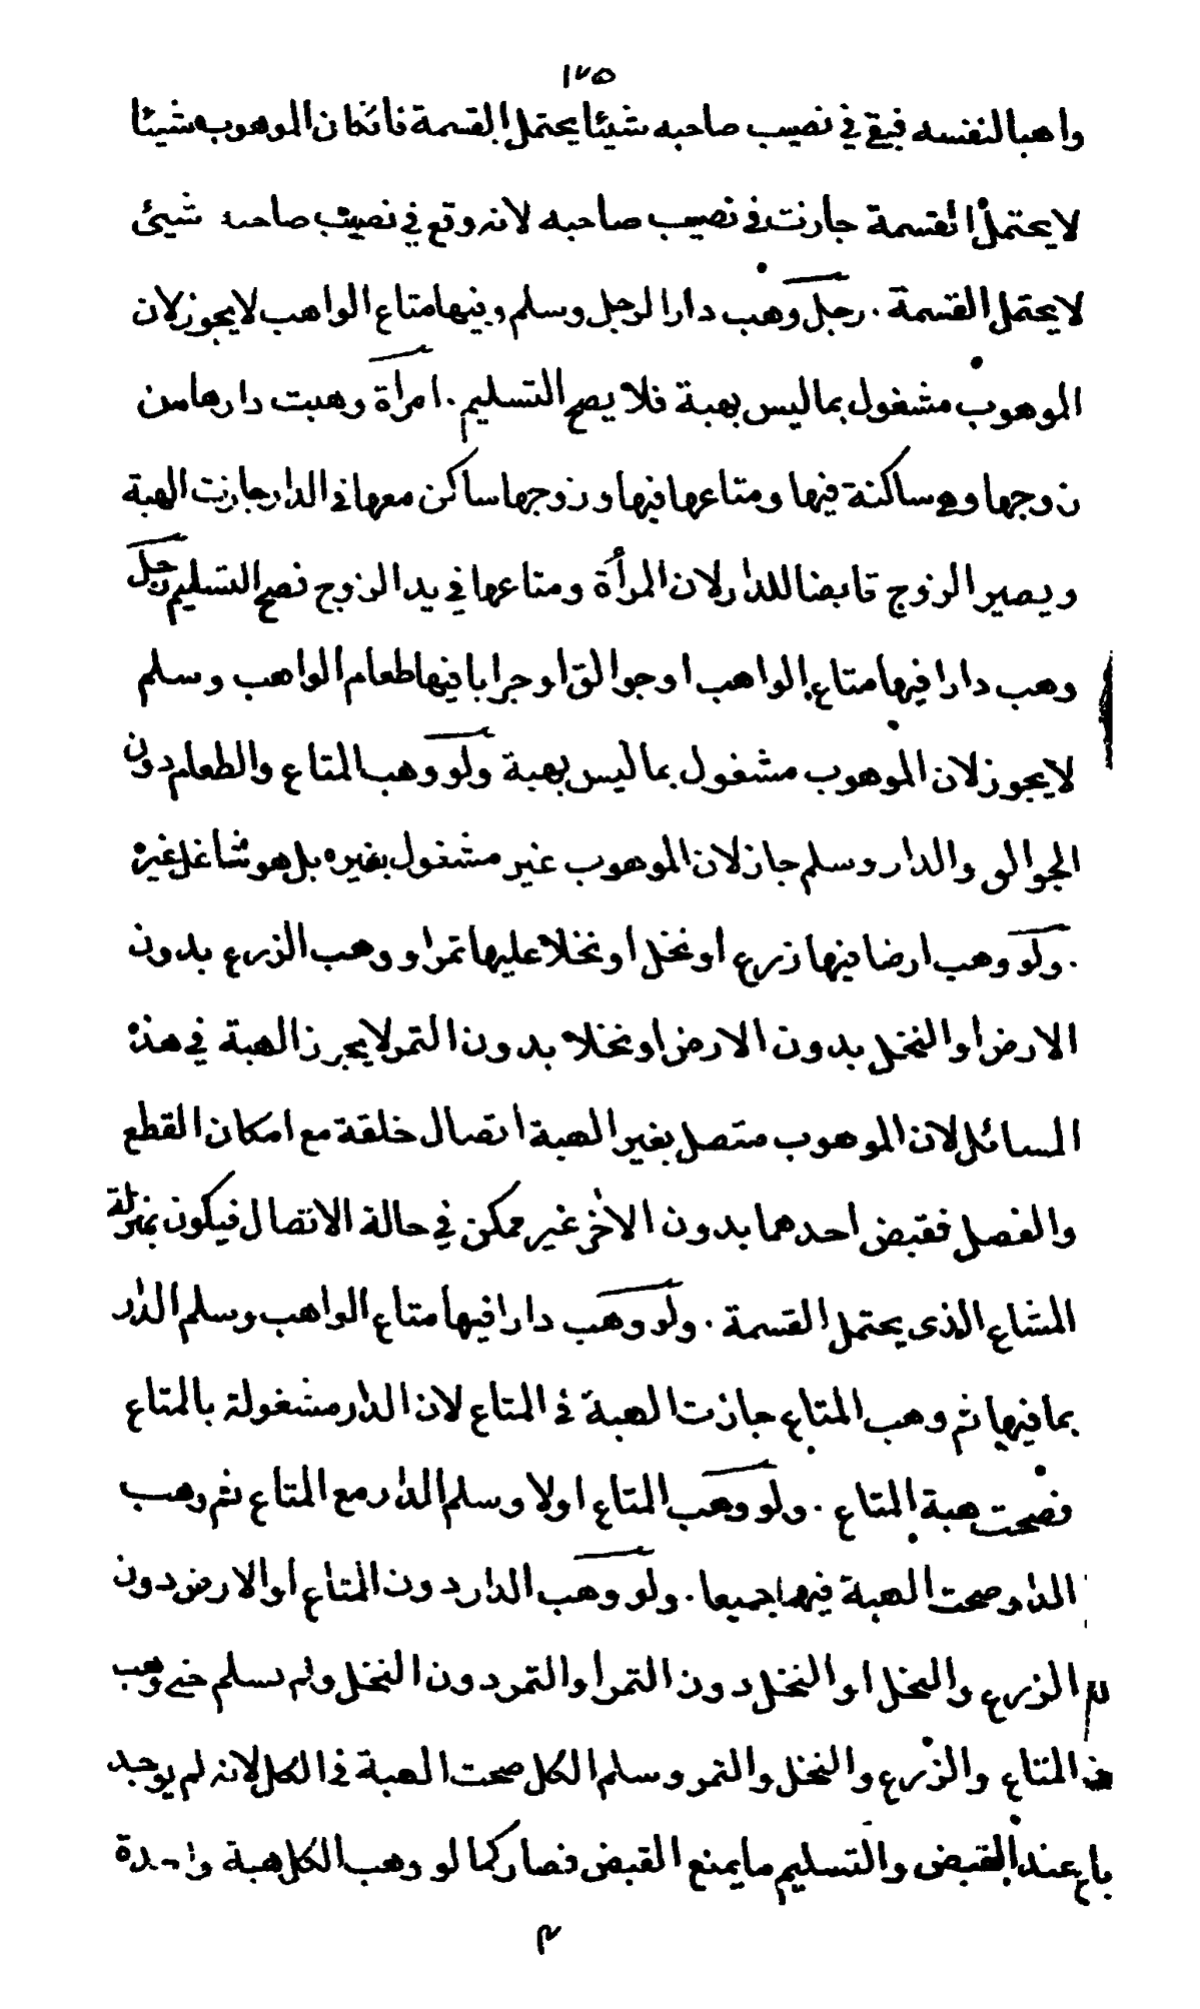 ١٢٥
واهبا لنفسه فبقي في نصيب صاحبه شيئا يحتمل القسمة فان كان الموهوب شيئا
لا يحتمل القسمة جازت في نصيب صاحبه لانه وقع في نصيب صاحبه شيئ
لا يحتمل القسمة . رجل وهب دارا لرجل وسلم وفيها متاع الواهب لا يجوز لان
الموهوب مشغول بما ليس بهبة فلا يصح التسليم . امرأة وهبت دارها من
زوجها وهي ساكنة فيها ومتاعها فيها وزوجها ساكن معها في الدار جازت الهبة
ويصير الزوج قابضا للدار لان المرأة ومتاعها في يد الزوج فصح التسليم رجل
وهب دارا فيها متاع الواهب او جوالق او جرابا فيها طعام الواهب وسلم
لا يجوز لان الموهوب مشغول بما ليس بهبة ولو وهب المتاع والطعام دون
الجوالق والدار وسلم جاز لان الموهوب غير مشغول بغيره بل هو شاغل غيره
. ولو وهب ارضا فيها زرع او نخل او نخلا عليها تمر او وهب الزرع بدون
الارض او النخل بدون الارض او نخلا بدون التمر لا يجوز الهبة في هذه
المسائل لان الموهوب متصل بغير الهبة اتصال خلقة مع امكان القطع
والفصل فقبض احدهما بدون الاخر غير ممكن في حالة الاتصال فيكون بمنزلة
المشاع الذى يحتمل القسمة . ولو وهب دارا فيها متاع الواهب وسلم الدار
بما فيها ثم وهب المتاع جازت الهبة في المتاع لان الدار مشغولة بالمتاع
فصحت هبة المتاع . ولو وهب المتاع اولا وسلم الدار مع المتاع ثم وهب
الدار صحت الهبة فيهما جميعا . ولو وهب الدار دون المتاع او الارض دون
الزرع والنخل او النخل دون التمر او التمر دون النخل ولم يسلم حتى وهب
المتاع والزرع والنخل والتمر وسلم الكل صحت الهبة في الكل لانه لم يوجد
عند القبض والتسليم ما يمنع القبض فصار كما لو وهب الكل هبة واحدة